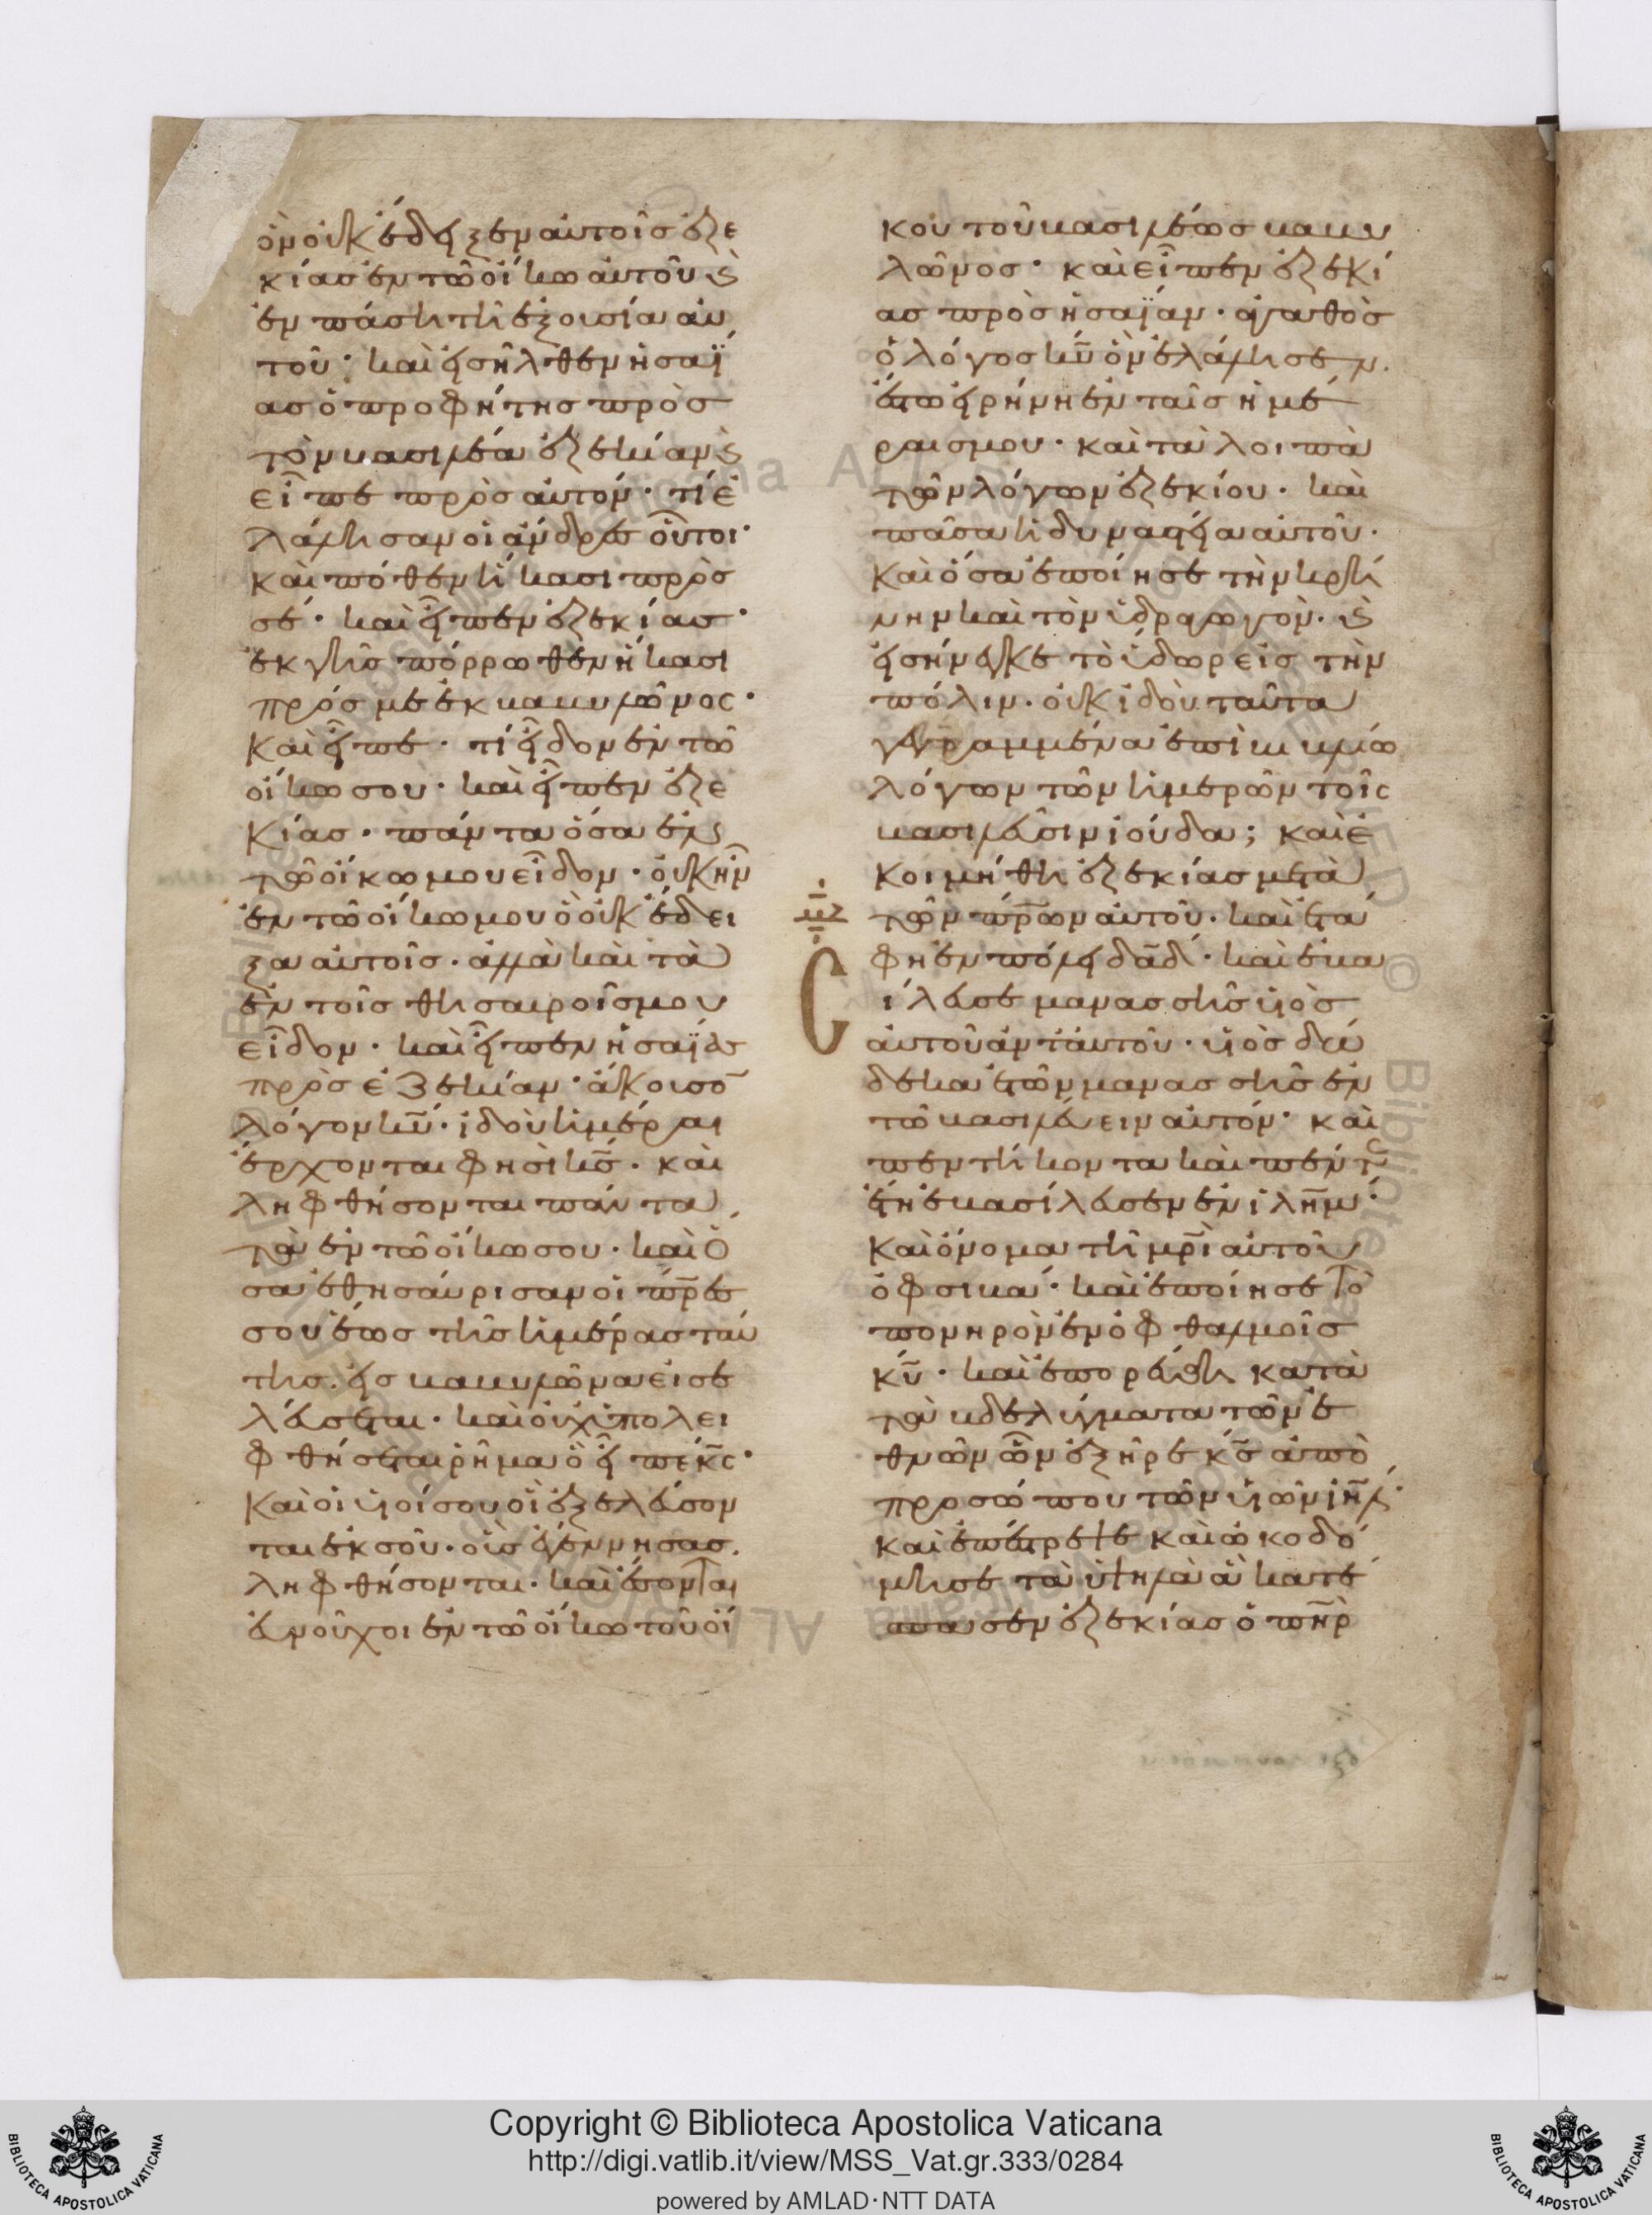 ὃν οὐκ ἔδειξεν αὐτοῖς ἐζε
κίας ἐν τῶ οἴκω αὐτοῦ ϗ
ἐν πάσηι τῆι ἐξουσία αὐ
τοῦ· καὶ εἰσῆλθεν ἡσαΐ
ας ὁ προφήτης πρὸς
τὸν βασιλέα ἐζεκίαν ϗ
εἶπε πρὸς αὐτόν· τί ἐ
λάλησαν οἱ ἄνδρες οὗτοι·
καὶ πόθεν ἥκασι πρὸς
σέ· καὶ εἶπεν ἐζεκίας·
ἐκ γῆς πόρρωθεν ἥκασι
πρός με ἐκ βαβυλῶνος·
καὶ εἶπε· τί εἶδον ἐν τῶ
οἴκω σου· καὶ εἶπεν ἐζε
κίας· πάντα ὅσα ἐν
τῶ οἴκω μου εἶδον· οὐκ ἦν
ἐν τῶ οἴκω μου ὃ οὐκ ἔδει
ξα αὐτοῖς· ἀλλὰ καὶ τὰ
ἐν τοῖς θησαυροῖς μου
εἶδον· καὶ εἶπεν ἡσαΐας
πρὸς ἐζεκίαν· ἄκουσο
λόγον κυ· ἰδοὺ ἡμέραι
ἔρχονται φησὶ κς· καὶ
ληφθήσονται πάντα
τὰ ἐν τῶ οἴκω σου· καὶ ὅ
σα ἐθησαύρισαν οἱ πρες
σου ἕως τῆς ἡμέρας ταύ
της. εἰς βαβυλῶνα εἰσε
λεύσεται· καὶ οὐχ ὑπολει
φθήσεται ῥῆμα ὃ εἶπε κς·
καὶ οἱ υἱοί σου οἳ ἐξελεύσον
ται ἐκ σοῦ· οὓς ἐγέννησας.
ληφθήσονται· καὶ ἔσονται
εὐνοῦχοι ἐν τῶ οἴκω τοῦ οἴ
κου τοῦ βασιλέως βαβυ
λῶνος· καὶ εἶπεν ἐζεκί
ας πρὸς ἡσαΐαν· ἀγαθὸς
ὁ λόγος κυ ὃν ἐλάλησεν.
ἔστω εἰρήνη ἐν ταῖς ἡμέ
ραις μου· καὶ τὰ λοιπὰ
τῶν λόγων ἐζεκίου· καὶ
πᾶσα ἡ δυναστεία αὐτοῦ·
καὶ ὅσα ἐποίησε τὴν κρή
νην καὶ τὸν ὑδραγωγὸν· ϗ
εἰσήνεγκε τὸ ὕδωρ εἰς τὴν
πόλιν· οὐκ ἰδοὺ ταῦτα
γεγραμμένα ἐπὶ βιβλίω
λόγων τῶν ἡμερῶν τοῖς
βασιλεῦσιν ἰούδα; καὶ ἐ
κοιμήθη ἐζεκίας μετὰ
τῶν πρων αὐτοῦ· καὶ ετά
φη ἐν πόλει δαδ· καὶ ἐβα
σίλευσε μανασσῆς υἱὸς
αὐτοῦ ἀντ αὐτοῦ· υἱὸς δώ
δεκα ἐτῶν μανασσῆς ἐν
τῶ βασιλεύειν αὐτόν· καὶ
πεντήκοντα καὶ πέντε
ἔτη ἐβασίλευσεν ἐν ιλημ·
καὶ ὄνομα τῆ μρι αὐτοῦ
ὀφσιβά· καὶ ἐποίησε τὸ
πονηρὸν ἐν ὀφθαλμοῖς
κυ· καὶ ἐπορεύθη κατὰ
τὰ βδελύγματα τῶν ἐ
θνῶν ὧν ἐξῆρε κς ἀπὸ
προσώπου τῶν υἱῶν ιηλ·
καὶ ἐπέστρεψε καὶ ὠκοδό
μησε τὰ ὑψηλὰ ἃ κατέ
σπασεν ἐζεκίας ὁ πηρ
Copyright © Biblioteca Apostolica Vaticana
http://digi.vatlib.it/view/MSS_Vat.gr.333/0284
powered by AMLAD·NTT DATA
BIBLIOTECA APOSTOLICA VATICANA
BIBLIOTECA APOSTOLICA VATICANA